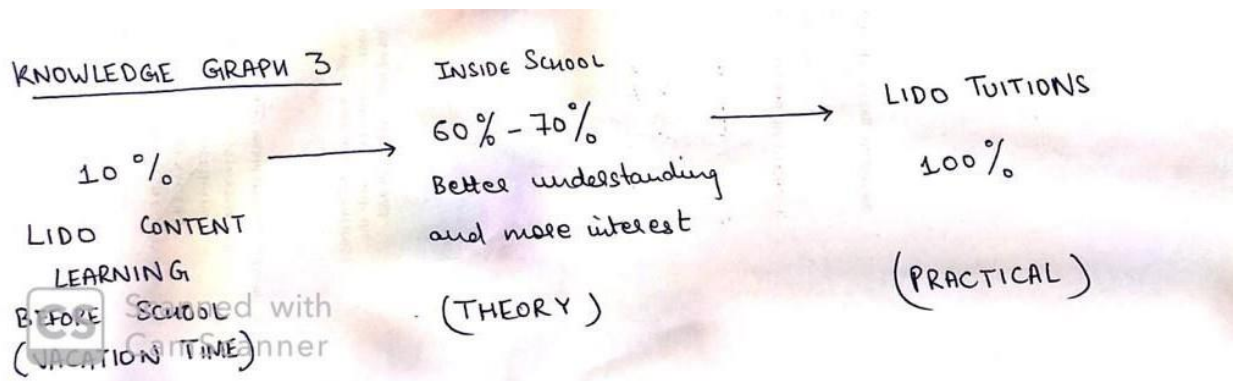 KNOWLEDGE GRAPH 3
10%
LIDO CONTENT
LEARNING
BEFORE SCHOOL
(VACATION TIME)
INSIDE SCHOOL
60% - 70%
Better understanding
and more interest
(THEORY)
LIDO TUITIONS
100%
(PRACTICAL)
CS Scanned with
CamScanner